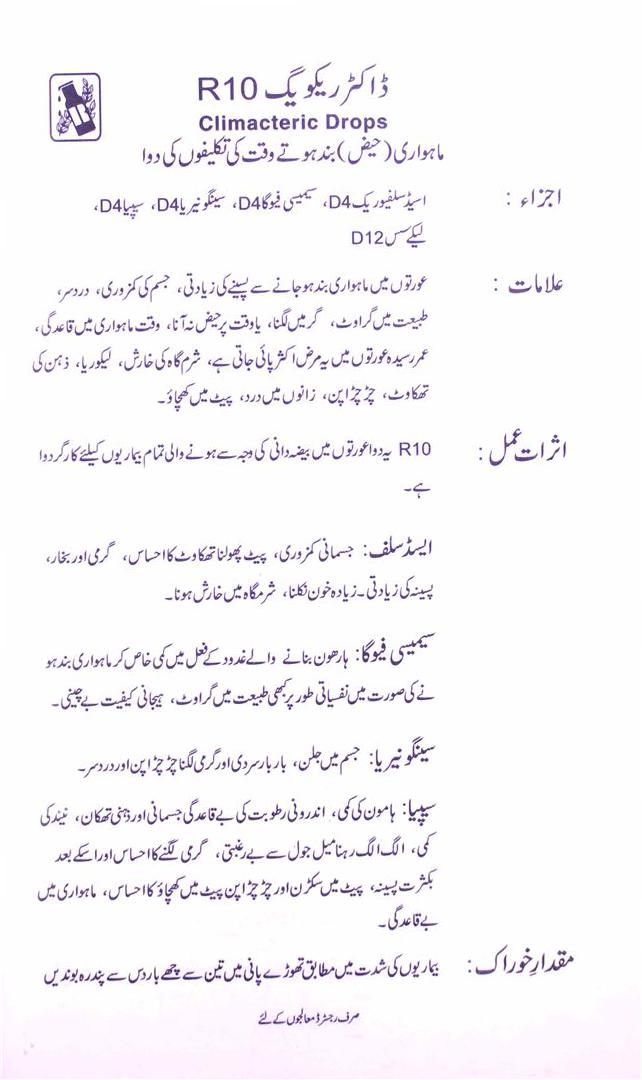 ڈاکٹر ریکویگ R10
Climacteric Drops
ماہواری (حیض) بند ہوتے وقت کی تکلیفوں کی دوا
اجزاء : اسیڈ سلفیوریک D4، سیمیسی فیوگا D4، سینگونیریا D4، سیپیا D4،
لیکے سس D12
علامات : عورتوں میں ماہواری بند ہو جانے سے پسینے کی زیادتی، جسم کی کمزوری، درد سر،
طبیعت میں گراوٹ، گرمیں لگنا، یا وقت پر حیض نہ آنا، وقت ماہواری میں قاعدگی،
عمر رسیدہ عورتوں میں یہ مرض اکثر پائی جاتی ہے، شرم گاہ کی خارش، لیکوریا، ذہن کی
تھکاوٹ، چڑچڑاپن، زانوں میں درد، پیٹ میں کھچاؤ۔
اثرات عمل : R10 یہ دوا عورتوں میں بیضہ دانی کی وجہ سے ہونے والی تمام بیماریوں کیلئے کارگر دوا
ہے۔
ایسڈ سلف: جسمانی کمزوری، پیٹ پھولنا تھکاوٹ کا احساس، گرمی اور بخار،
پسینہ کی زیادتی۔ زیادہ خون نکلنا، شرمگاہ میں خارش ہونا۔
سیمیسی فیوگا: ہارھون بنانے والے غدود کے فعل میں کمی خاص کر ماہواری بند ہو
نے کی صورت میں نفسیاتی طور پر کبھی طبیعت میں گراوٹ، ہیجانی کیفیت بے چینی۔
سینگونیریا: جسم میں جلن، بار بار سردی اور گرمی لگنا چڑچڑاپن اور درد سر۔
سیپیا: ہامون کی کمی، اندرونی رطوبت کی بے قاعدگی جسمانی اور ذہنی تھکان، نیند کی
کمی، الگ الگ رہنا میل جول سے بے رغبتی، گرمی لگنے کا احساس اور اسکے بعد
بکثرت پسینہ، پیٹ میں سکڑن اور چڑچڑاپن پیٹ میں کھچاؤ کا احساس، ماہواری میں
بے قاعدگی۔
مقدارِ خوراک : بیماریوں کی شدت میں مطابق تھوڑے پانی میں تین سے چھے بار دس سے پندرہ بوندیں
صرف رجسٹرڈ معالجوں کے لئے